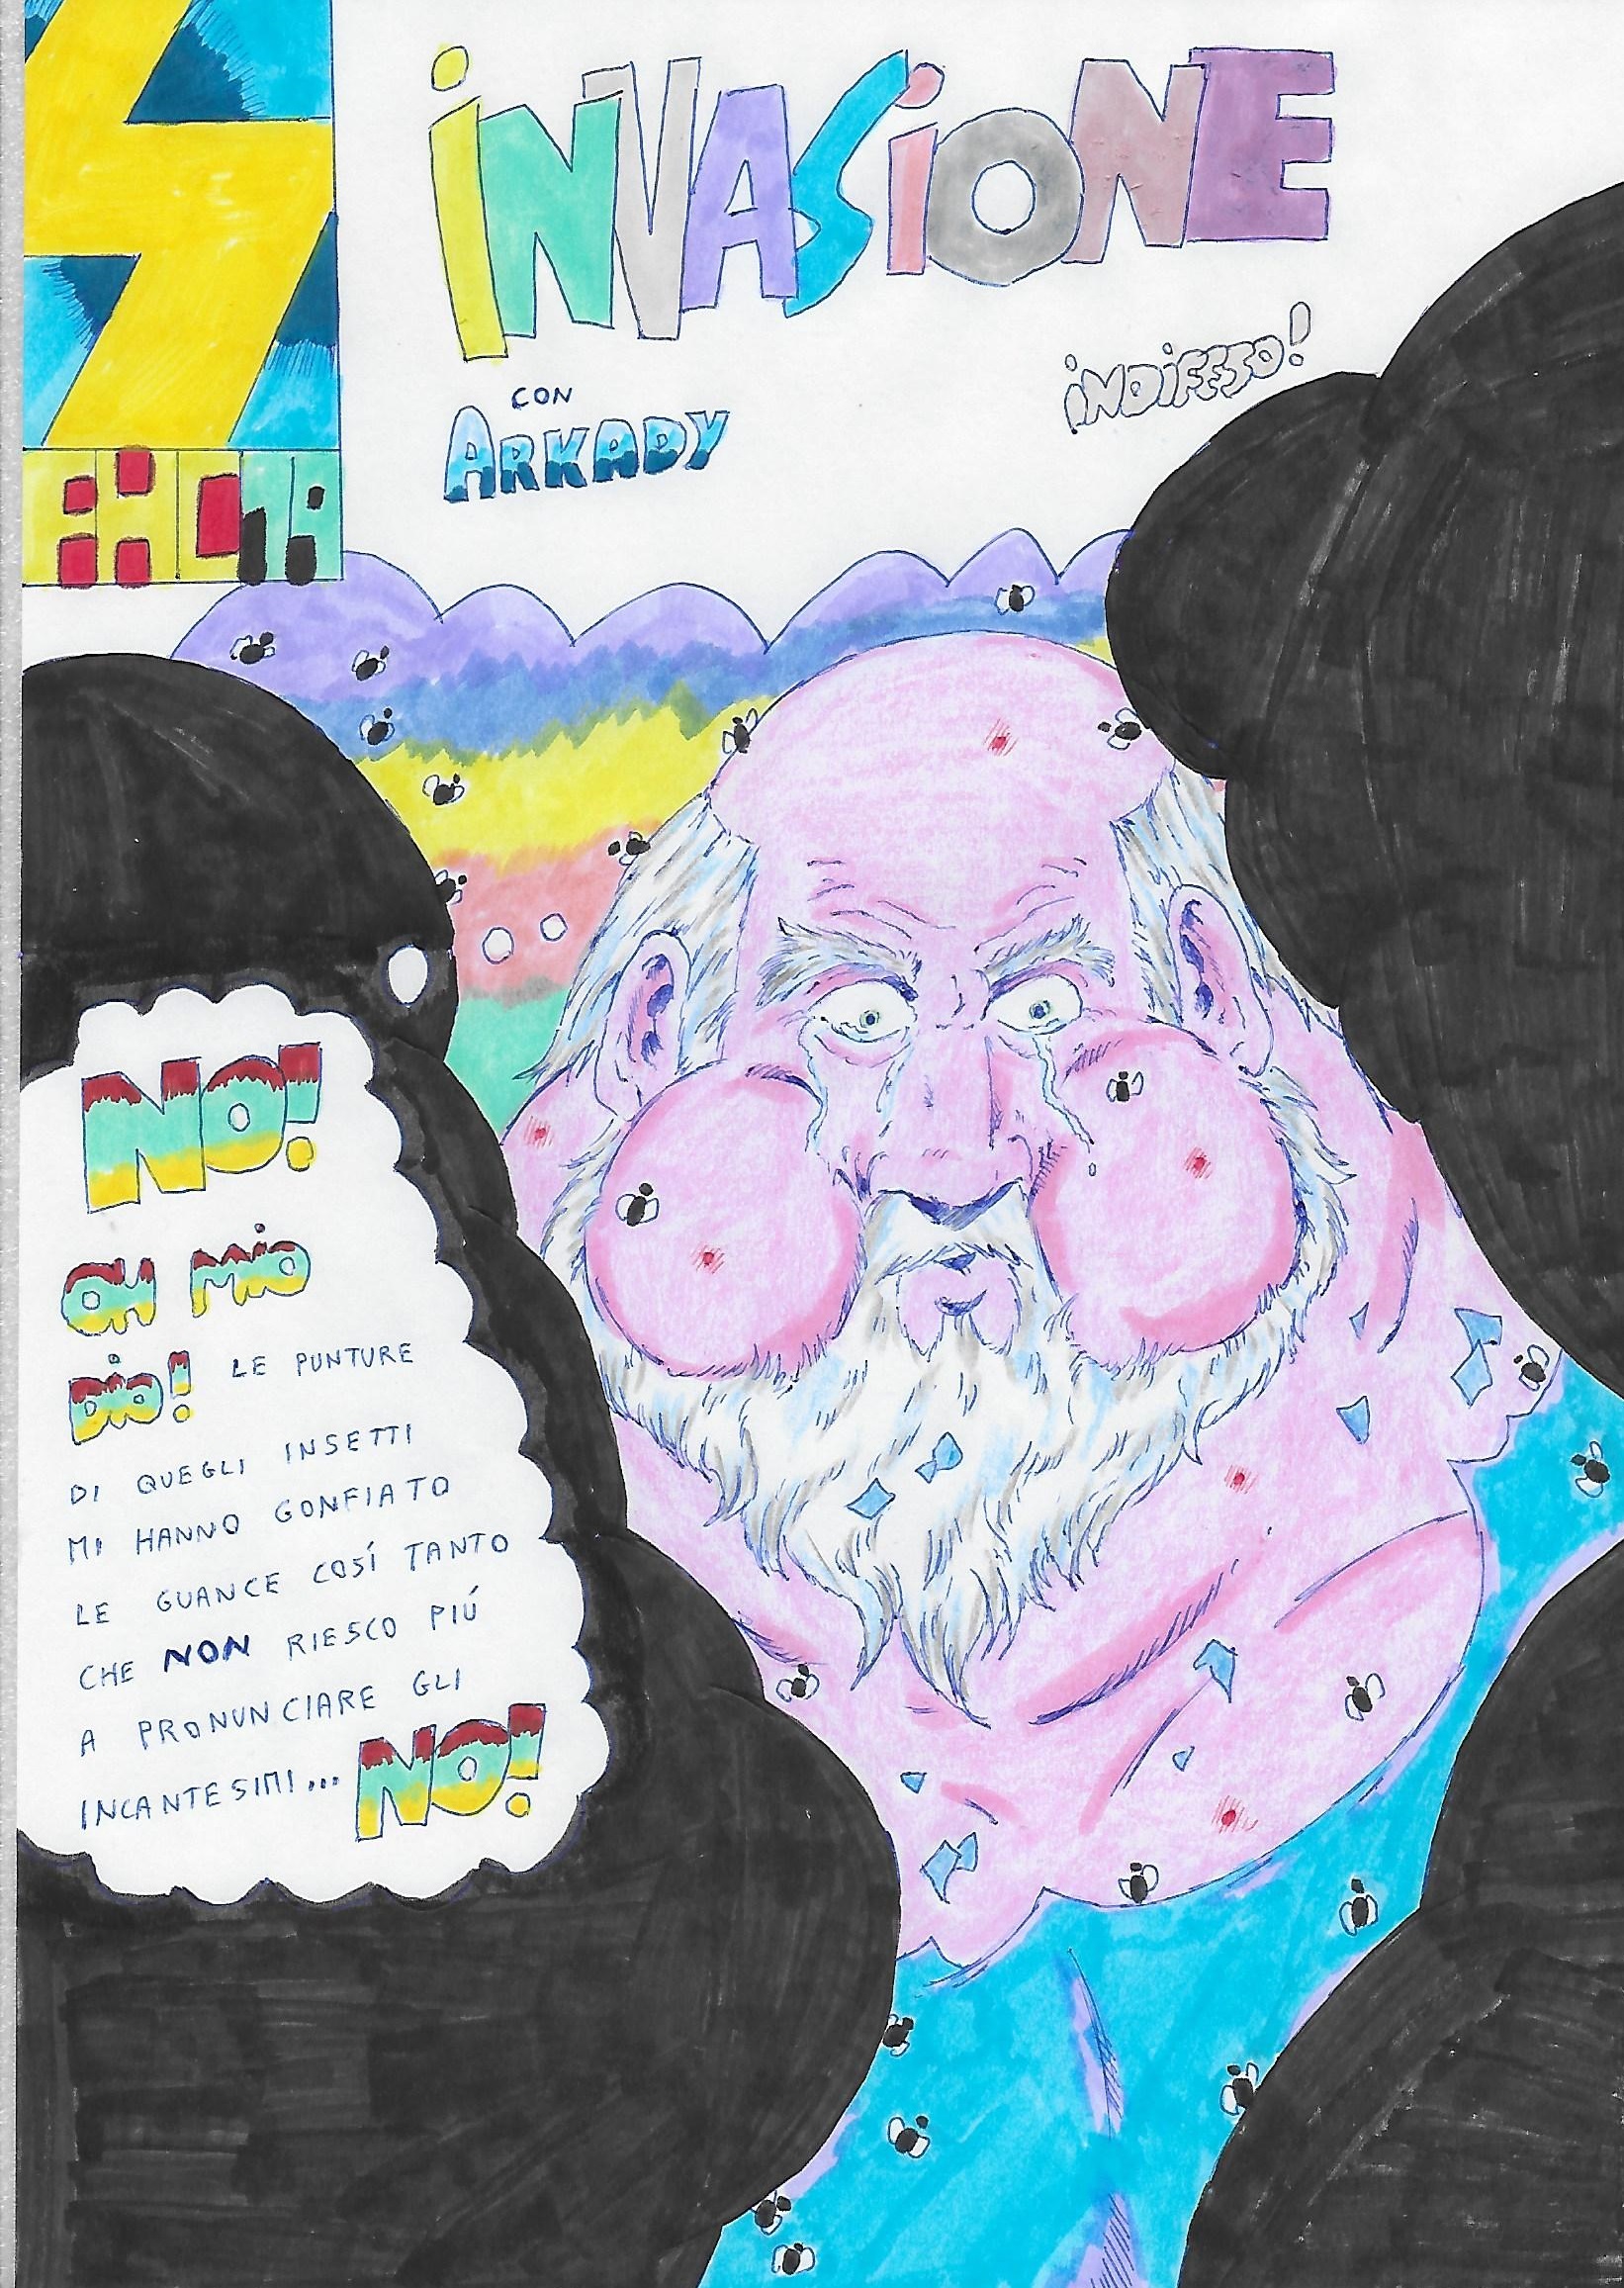 iNVASiONE
CON
ARKADY
iNDiFESO!
NO!
OH MiO
DiO! LE PUNTURE
DI QUEGLI INSETTI
MI HANNO GONFIATO
LE GUANCE COSÍ TANTO
CHE NON RIESCO PIÚ
A PRONUNCIARE GLI
INCANTESIMI... NO!